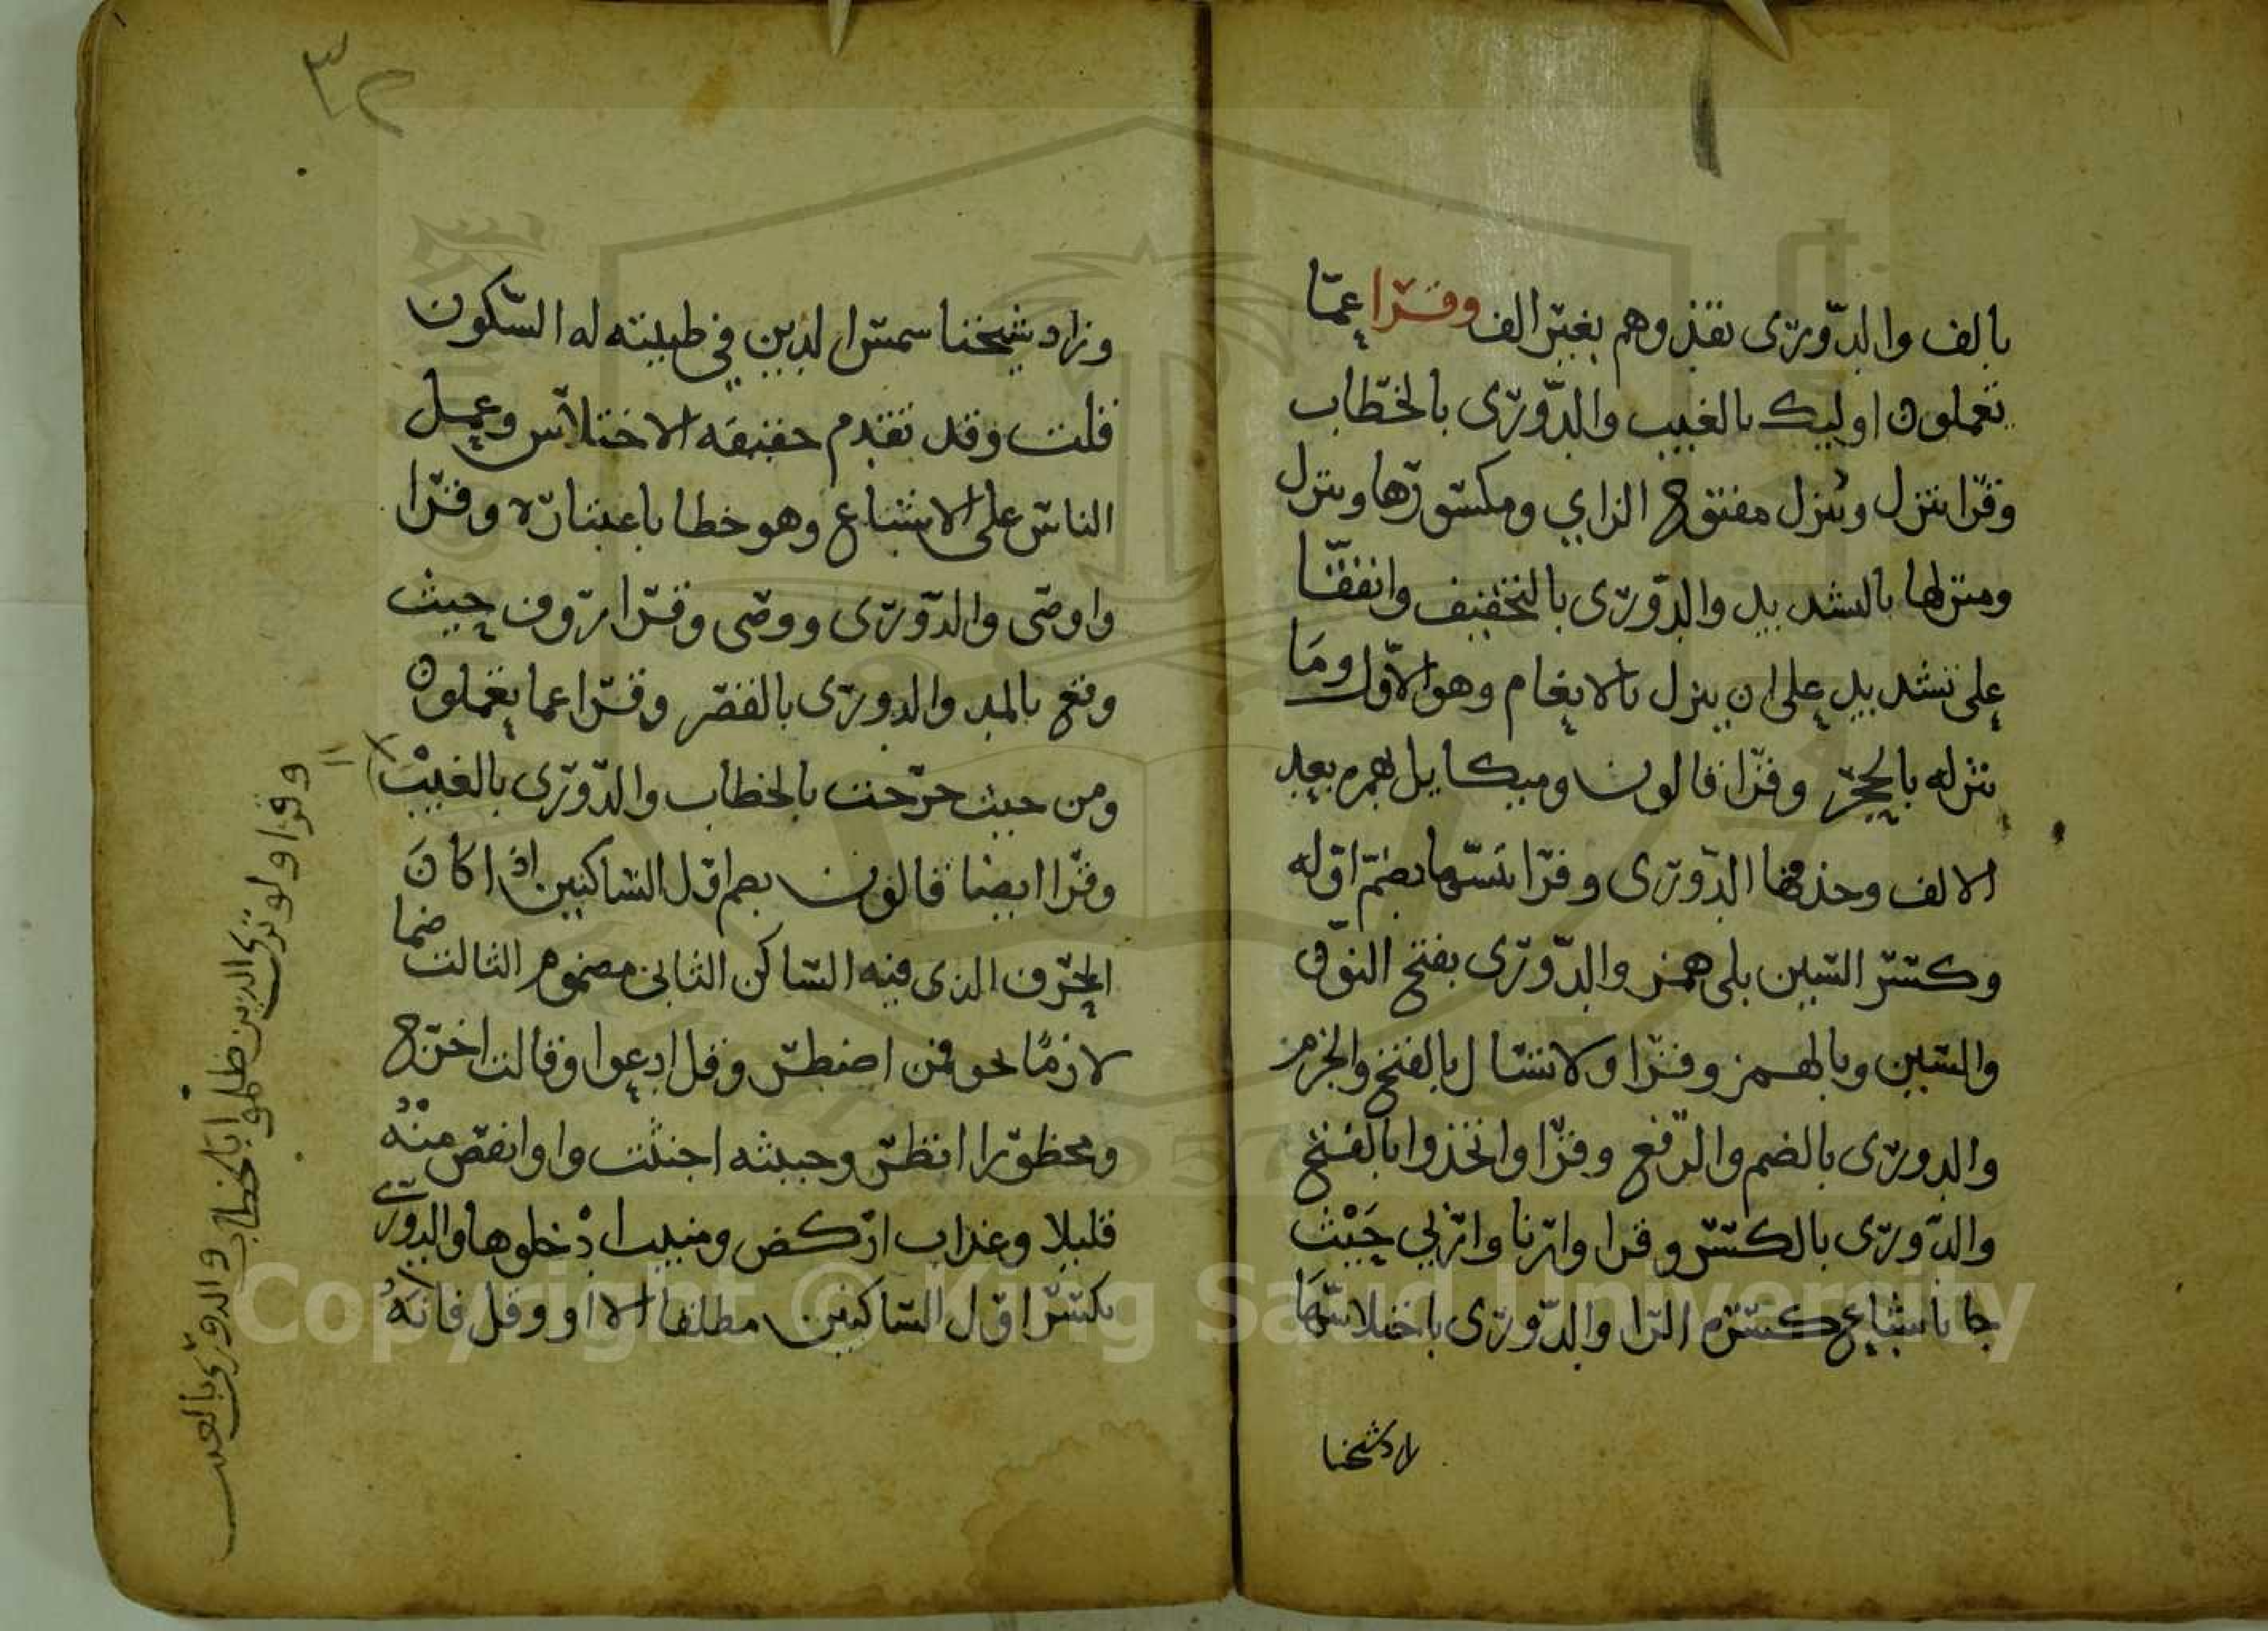 بالف والدّورى تفدوهم بغير الف وقرا عمّا
تعملون اوليك بالغيب والدّورى بالخطاب
وقرا ننزل وتنزل مفتوح الزاي ومكسورها وينزل
ومنزلها بالتشديد والدّورى بالتخفيف واتفقا
على تشديد على ان ينزل بالانعام وهو الاوّل وما
ننزله بالحجر وقرا قالون وميكايل بهمز بعد
الالف وحذفها الدّورى وقرا ننسها بضمّ اوّله
وكسر السين بلى همز والدّورى بفتح النون
والسين وبالهمز وقرا ولا تسال بالفتح والجزم
والدورى بالضم والرّفع وقرا واتخذوا بالفتح
والدّورى بالكسر وقرا وارنا وارنى حيث
جا باشباع كسرة الرّا والدّورى باختلاسها
زاد شيخنا
٣٢
وزاد شيخنا شمس الدين في طيبته له السّكون
قلت وقد تقدم حقيقه الاختلاس وعمل
الناس على الاشباع وهو خطا باعتباره وقرا
واوصى والدّورى ووصى وقرا روف حيث
وقع بالمد والدورى بالقصر وقرا عما يعملون
ومن حيث خرجت بالخطاب والدّورى بالغيب
وقرا ايضا قالون بضم اوّل الساكنين اذا كان
الحرف الذى فيه الساكن الثانى مضموم الثالث ضما
لازمًا نحو فمن اضطر وقل ادعوا وقالت اخرج
ومحظورا انظر وخبيثه اجتثت واو انقص منه
قليلا وعذاب اركض ومنيب ادخلوها والدورى
بكسر اوّل الساكنين مطلقا الا او وقل فانه
وقرا ولو ترى الدين ظلموا بالخطاب والدورى بالغيب